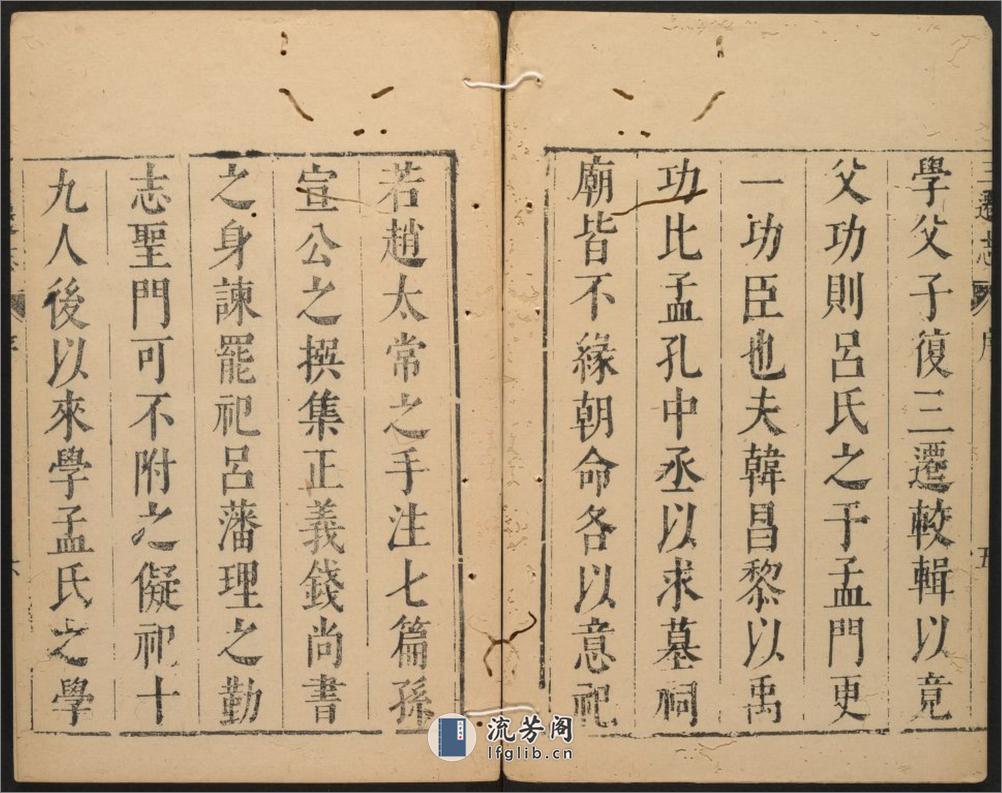 三遷志
序
五
學父子復三遷較輯以竟
父功則呂氏之于孟門更
一功臣也夫韓昌黎以禹
功比孟孔中丞以求墓祠
廟皆不緣朝命各以意祀
若趙太常之手注七篇孫
宣公之撰集正義錢尚書
之身諫罷祀呂藩理之勤
志聖門可不附之儗祀十
九人後以來學孟氏之學
流芳阁
lfglib.cn